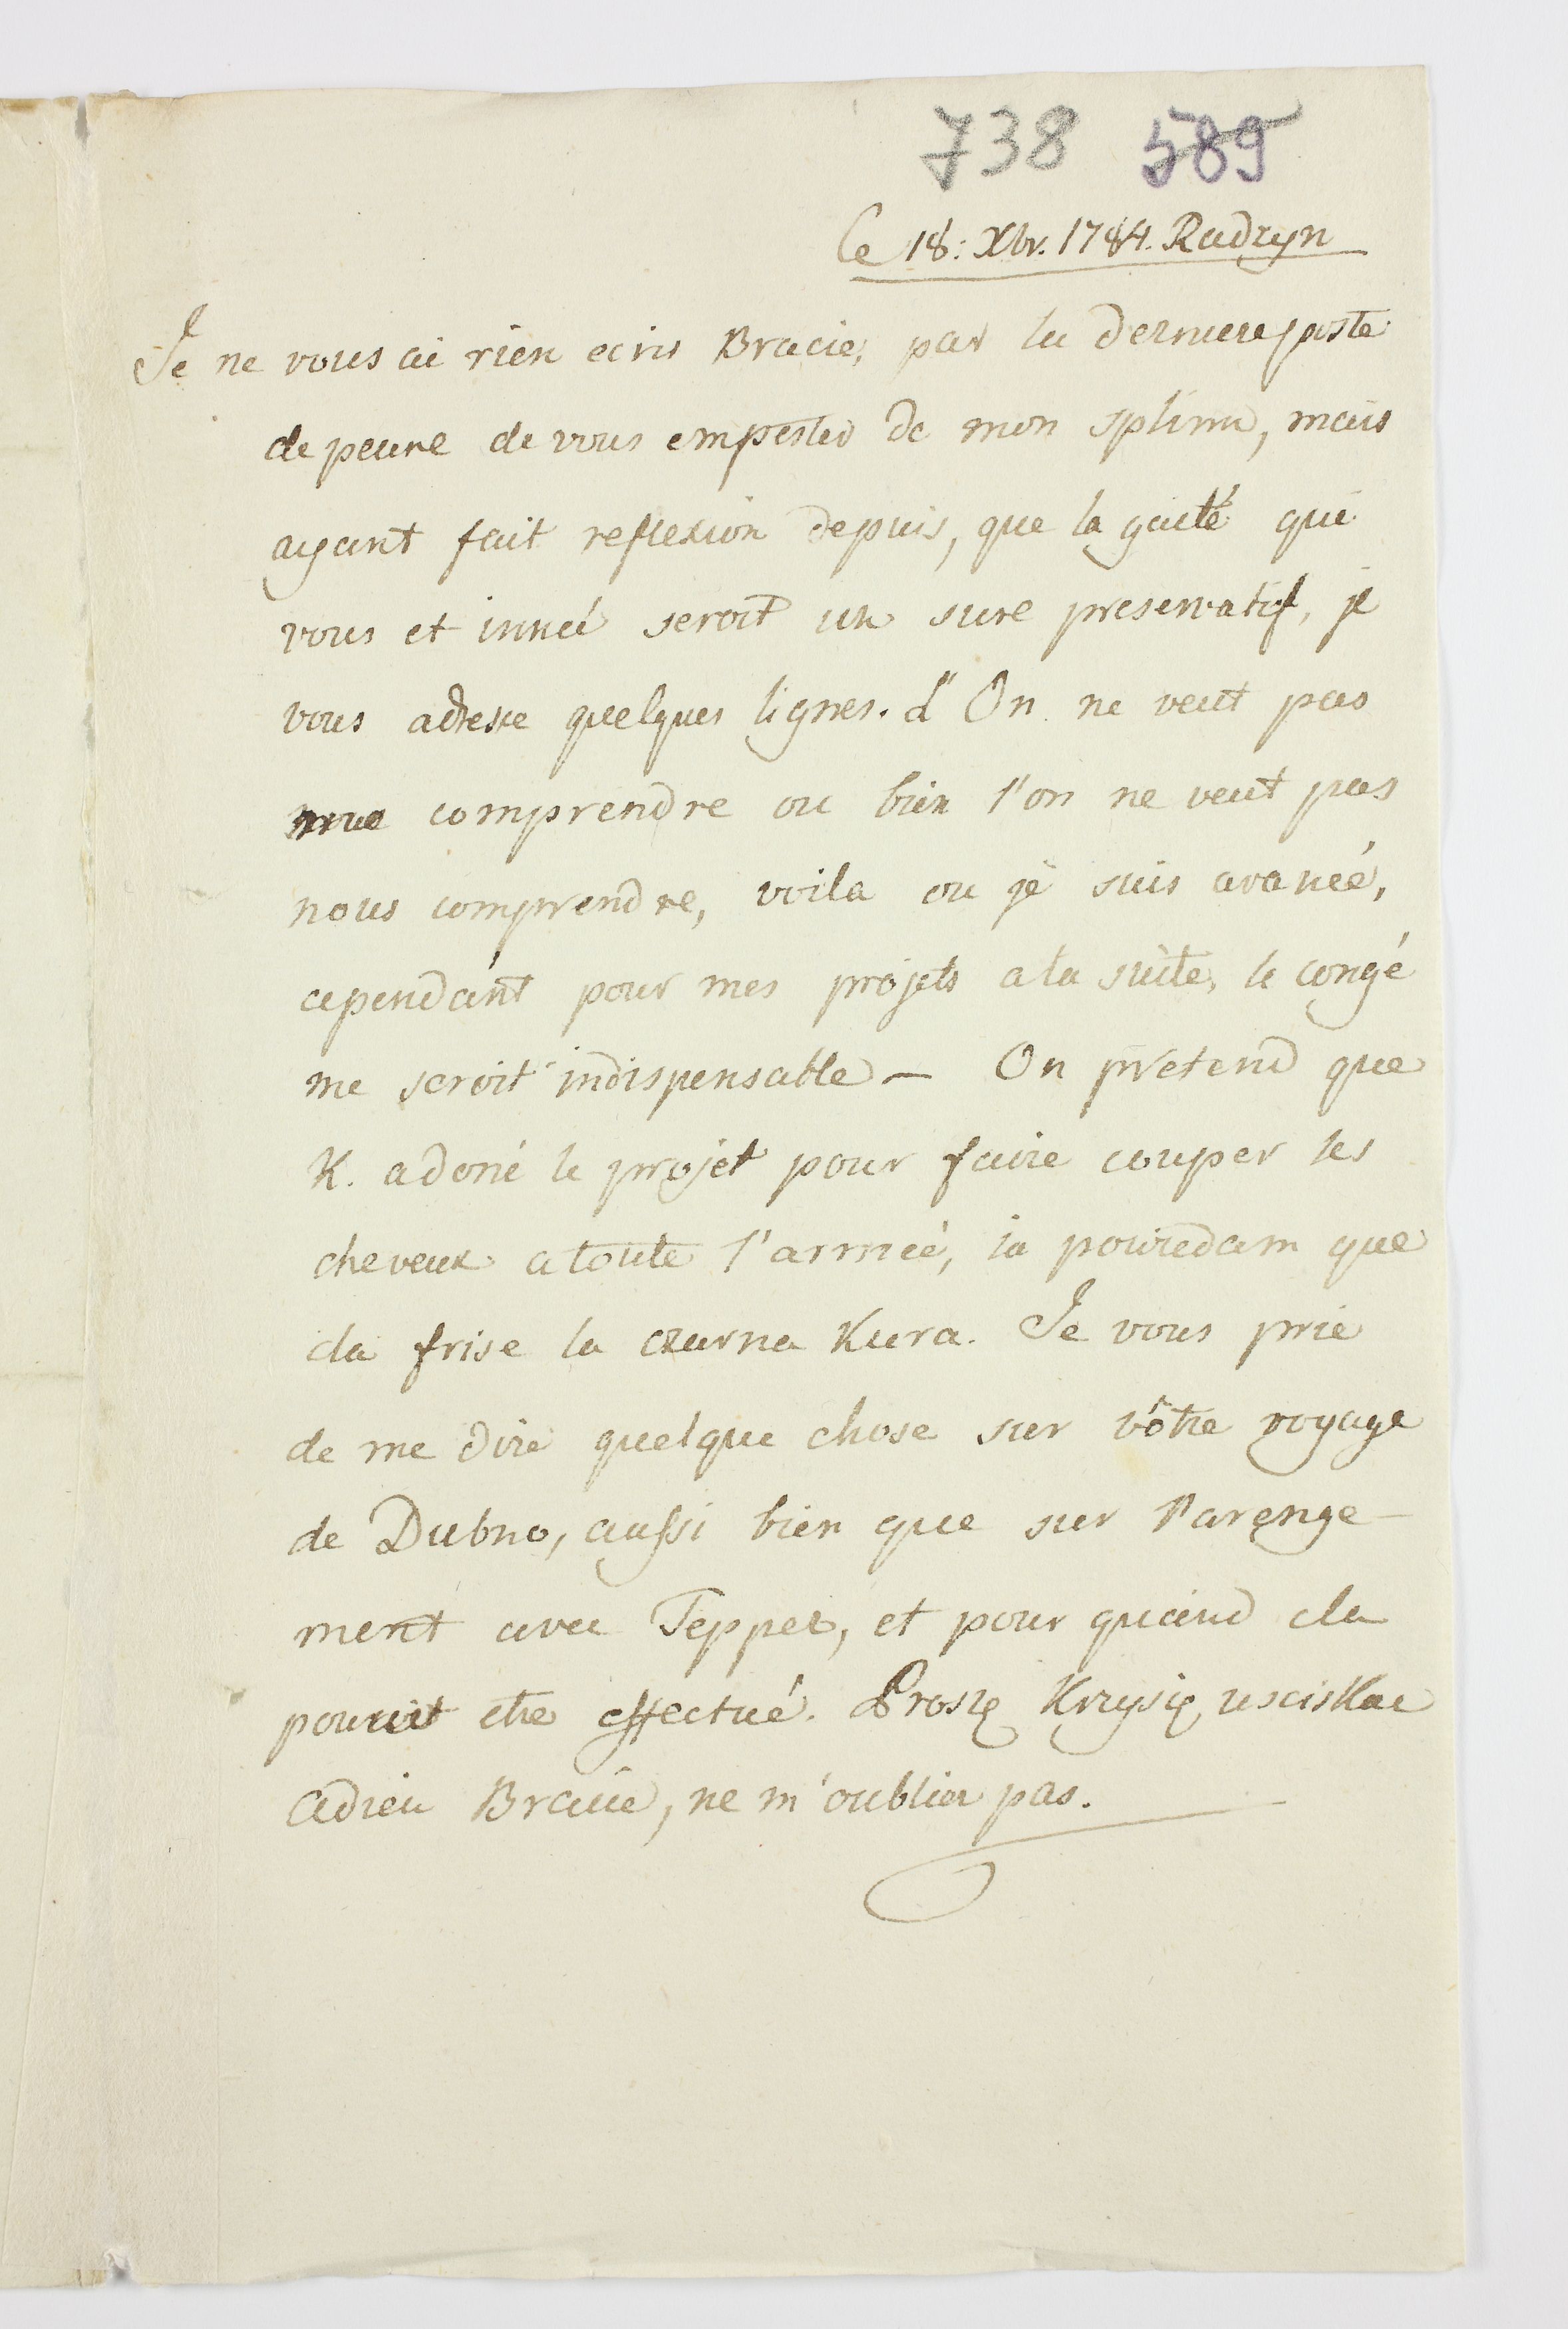 738 589
Ce 18: Xbr. 1784. Radzyn
Je ne vous ai rien ecris Bracie, par la derniere poste
de peure de vous empester de mon splinn, mais
ayant fait reflexion depuis, que la gaité qui
vous et inneé seroit un sure preservatif, je
vous adresse quelques lignes. L'On ne veut pas
comprendre ou bien l'on ne veut pas
nous comprendre, voila ou je suis avancé,
cependant pour mes projets a la suite, le congé
me seroit indispensable — On pretend que
K. a doné le projet pour faire couper les
cheveux a toute l'armeé, ia powiedam que
cla frise la czarna Kura. Je vous prie
de me dire quelque chose sur vôtre voyage
de Dubno, aussi bien que sur l'arenge-
ment avec Tepper, et pour quand cla
pouroit etre effectué. Proszę Krysię usciskac
adieu Bracie, ne m'oublier pas.